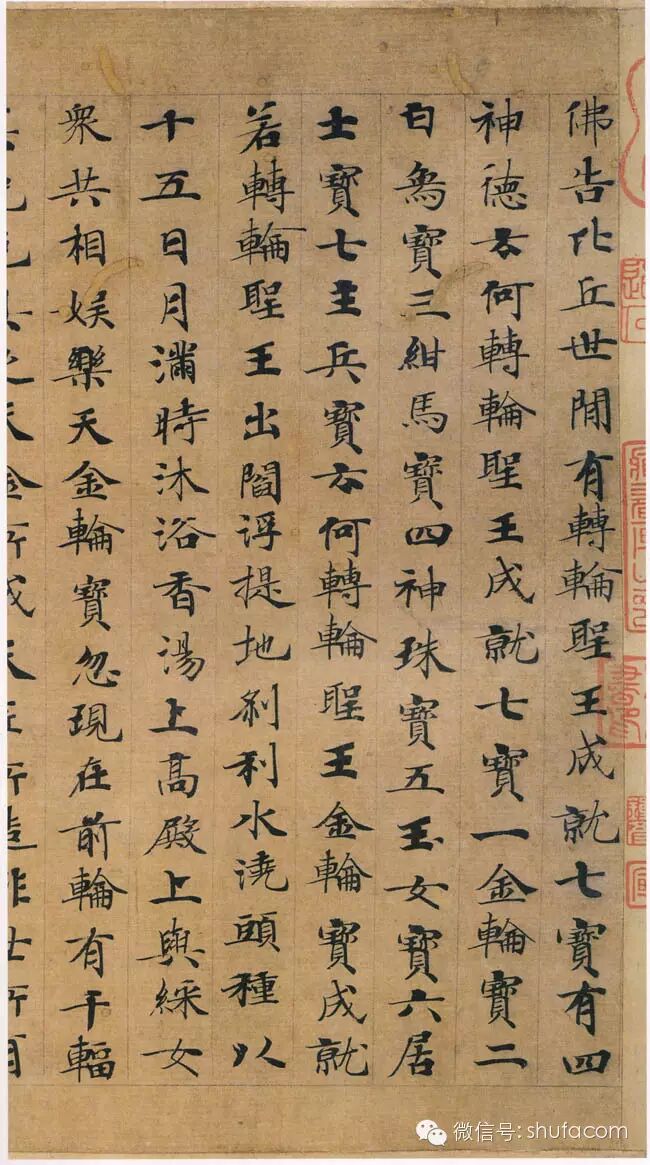 佛告比丘世閒有轉輪聖王成就七寶有四
神德云何轉輪聖王成就七寶一金輪寶二
白象寶三紺馬寶四神珠寶五玉女寶六居
士寶七主兵寶云何轉輪聖王金輪寶成就
若轉輪聖王出閻浮提地剎利水澆頭種以
十五日月滿時沐浴香湯上高殿上與綵女
衆共相娛樂天金輪寶忽現在前輪有千輻
具光色具足天金所成天匠所造非世所有
微信号: shufacom